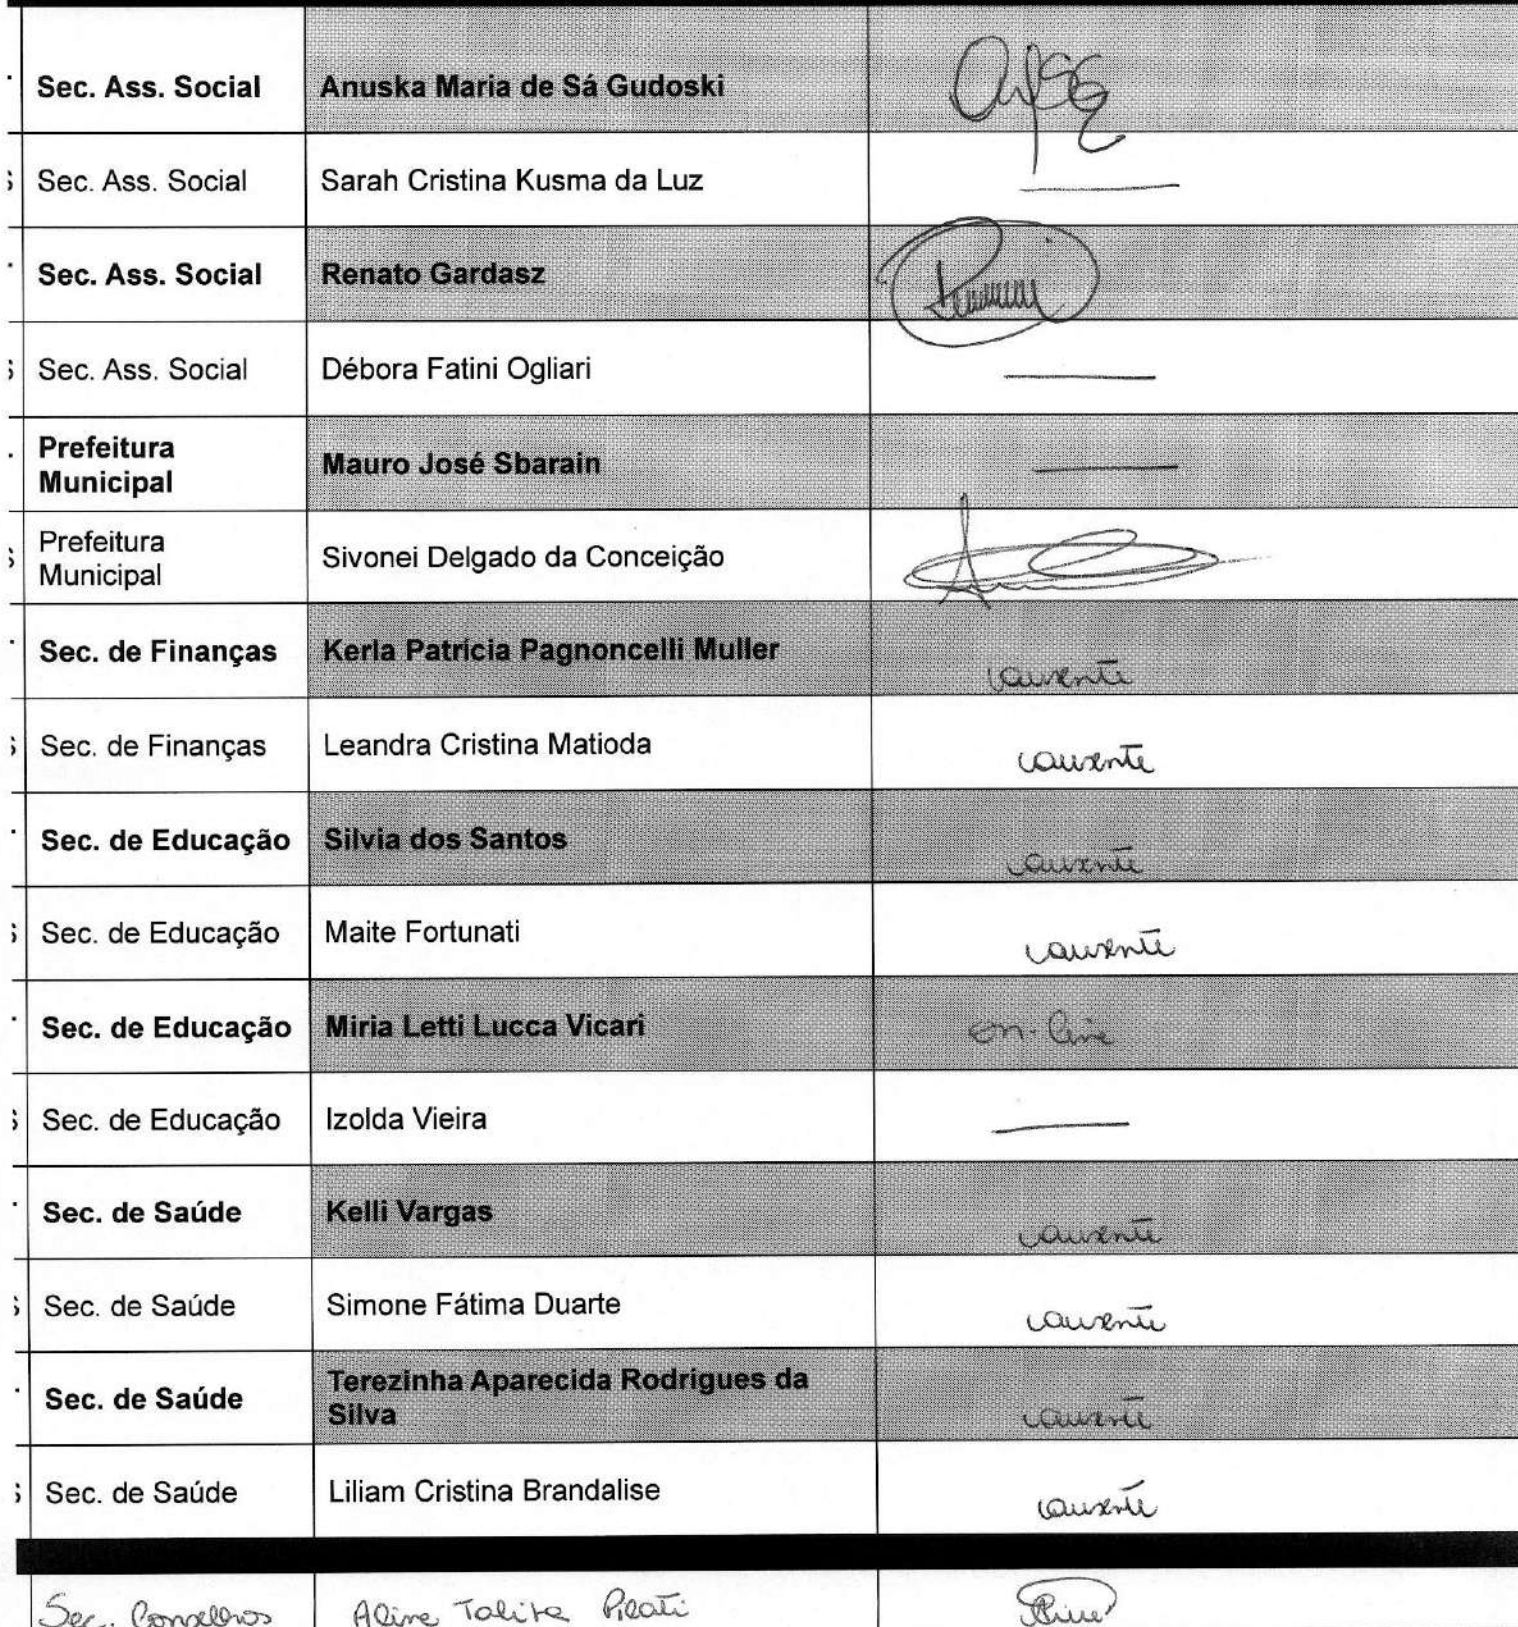 Sec. Ass. Social Anuska Maria de Sá Gudoski
Sec. Ass. Social Sarah Cristina Kusma da Luz
Sec. Ass. Social Renato Gardasz
Sec. Ass. Social Débora Fatini Ogliari
Prefeitura
Municipal Mauro José Sbarain
Prefeitura
Municipal Sivonei Delgado da Conceição
Sec. de Finanças Kerla Patrícia Pagnoncelli Muller ausente
Sec. de Finanças Leandra Cristina Matioda ausente
Sec. de Educação Silvia dos Santos ausente
Sec. de Educação Maite Fortunati ausente
Sec. de Educação Miria Letti Lucca Vicari on-line
Sec. de Educação Izolda Vieira
Sec. de Saúde Kelli Vargas ausente
Sec. de Saúde Simone Fátima Duarte ausente
Sec. de Saúde Terezinha Aparecida Rodrigues da
Silva ausente
Sec. de Saúde Liliam Cristina Brandalise ausente
Sec. Conselhos Aline Talita Pilati